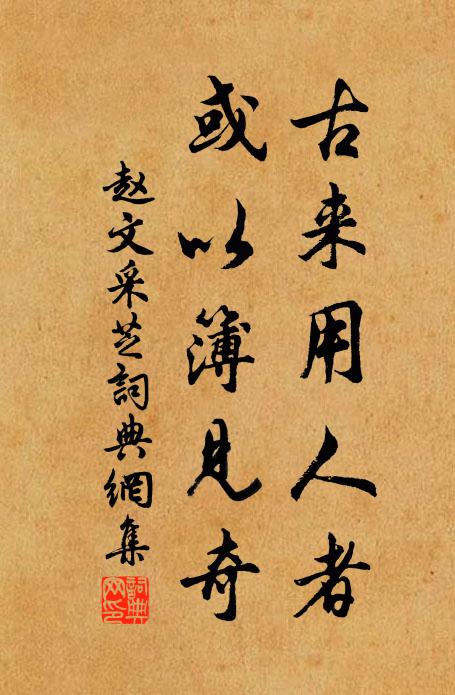 古来用人者
或以簿見奇
赵文采芝詞典網集
詞典网印